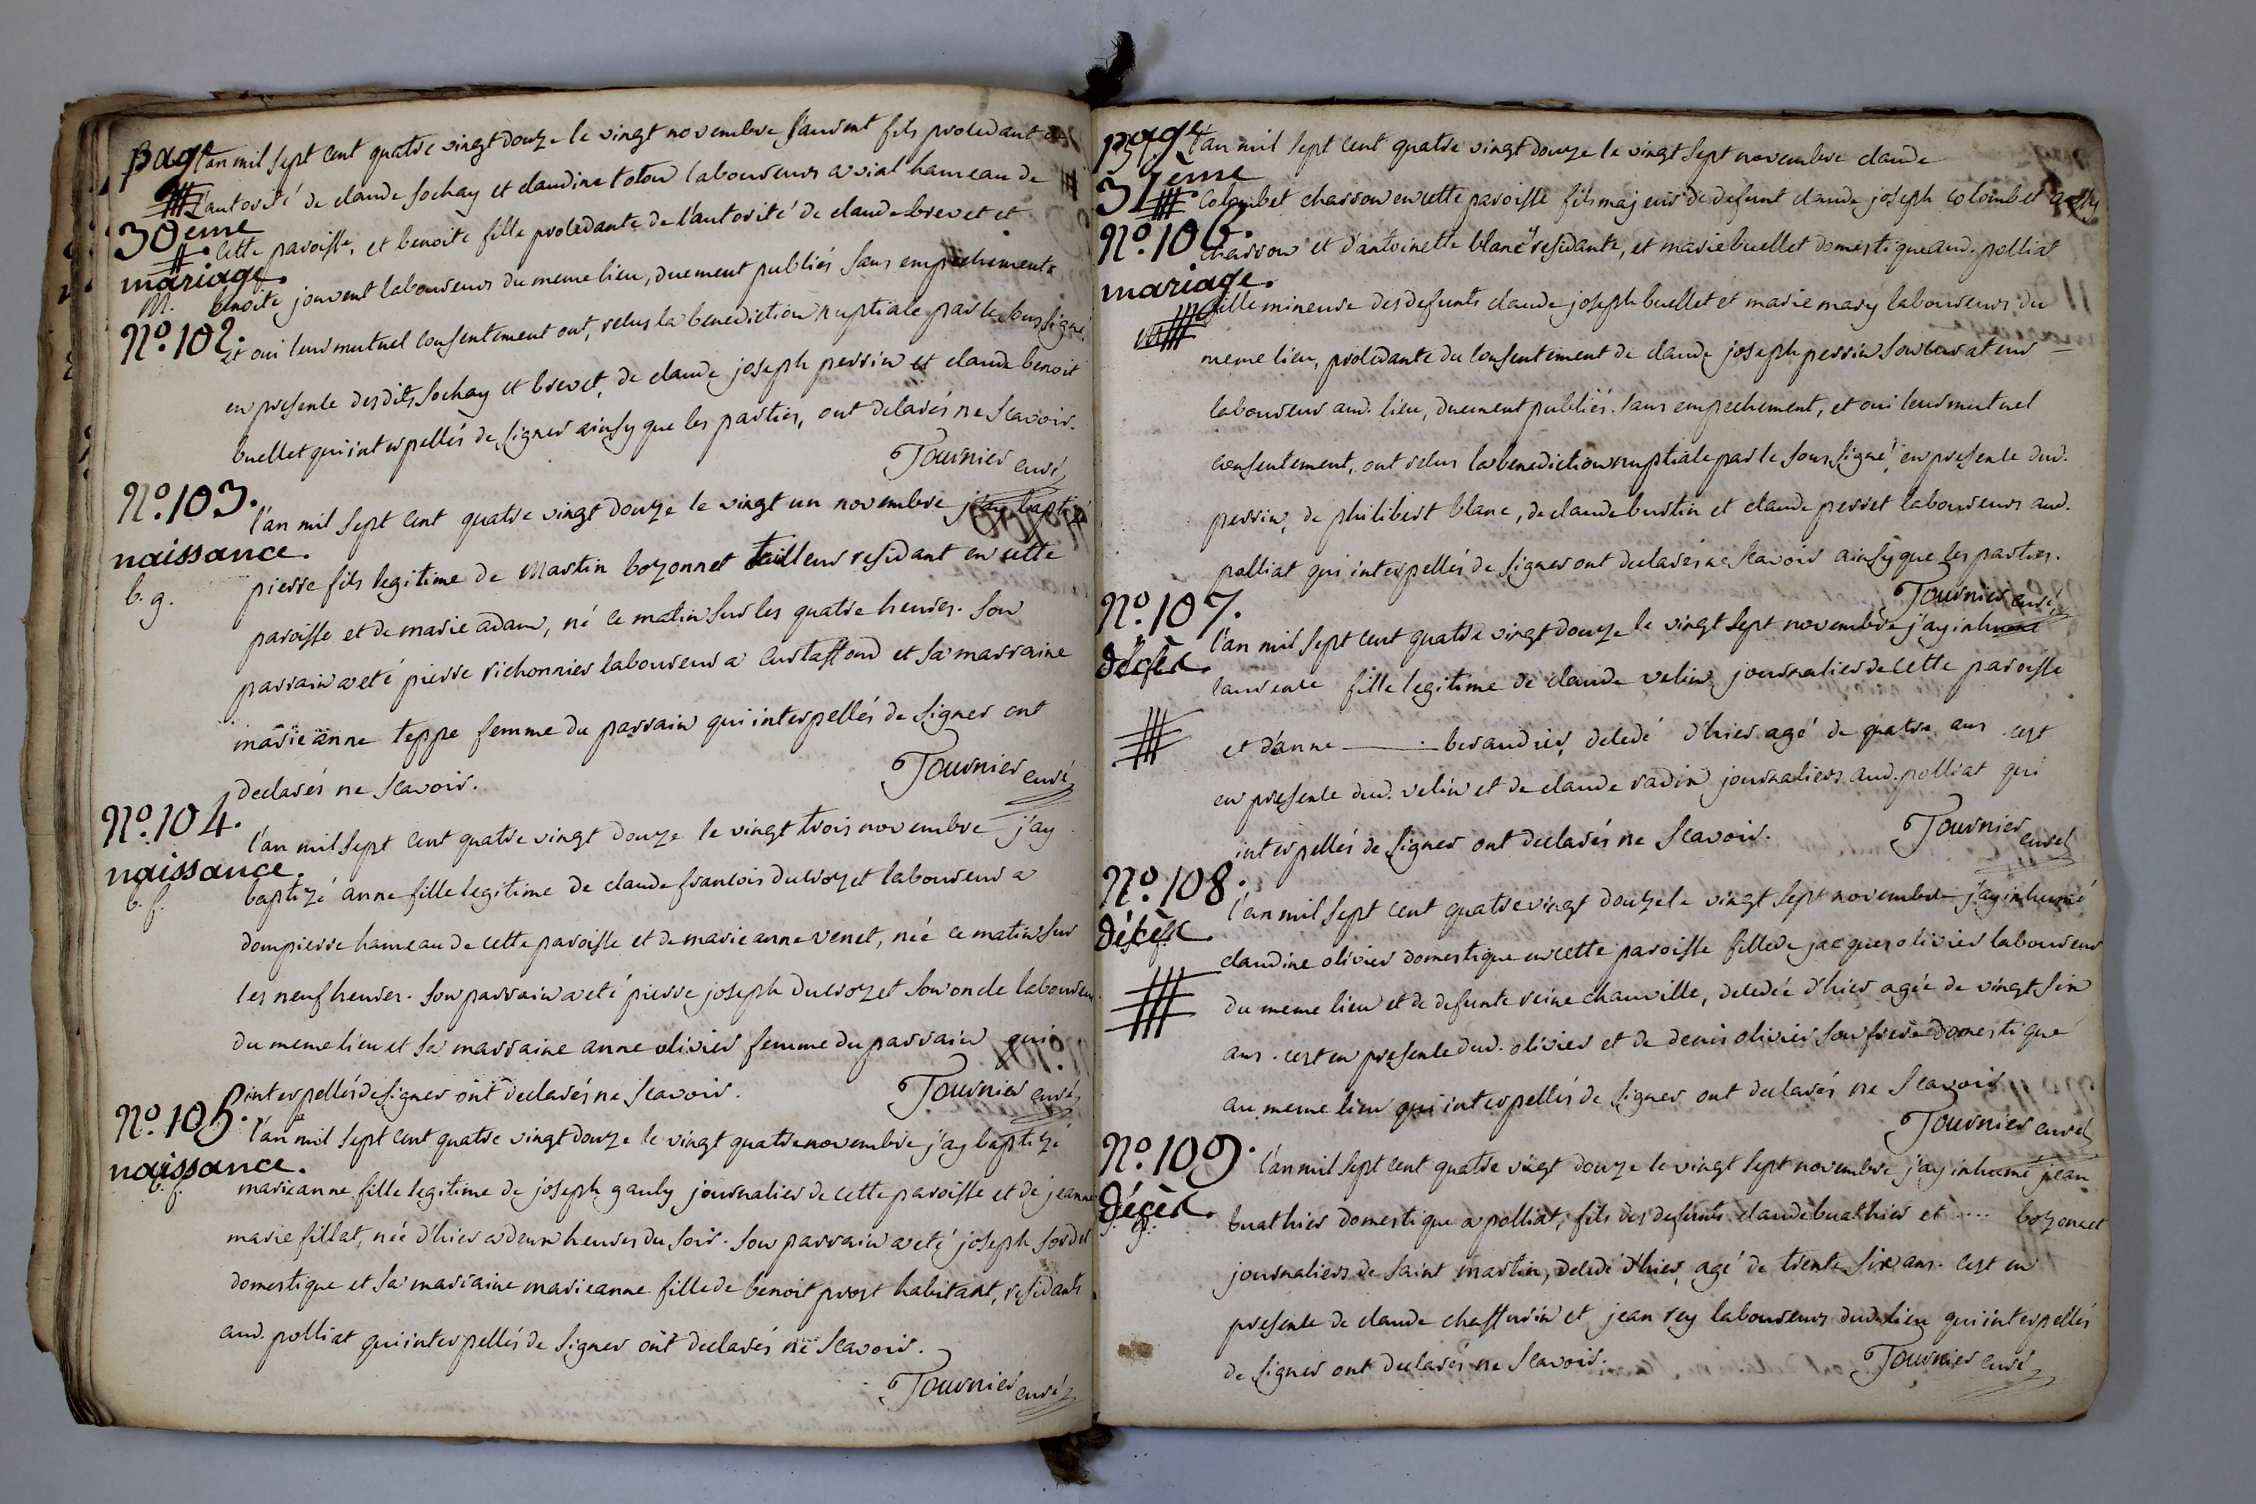 page
30eme
mariage.
M.
N.º 102.
l'an mil sept cent quatre vingt douze le vingt novembre laurent fils procedant de
l'autorité de claude sochay et claudine toton laboureurs a vial hameau de
cette paroisse, et benoite fille procedante de l'autorité de claude brevet et
benoite jouvent laboureurs du meme lieu, duement publiés sans empechements
et oui leur mutuel consentement ont, recus la benediction nuptiale par le soussigné
en presence desdits sochay et brevet, de claude joseph perrin et claude benoit
buellet qui interpellés de signer ainsy que les parties, ont declarés ne scavoir.
Tournier curé
N.º 103.
naissance.
b. g.
l'an mil sept cent quatre vingt douze le vingt un novembre j'ay baptizé
pierre fils legitime de Martin bozonnet tailleur residant en cette
paroisse et de marie adam, né ce matin sur les quatre heures. son
parrain a eté pierre richonnier laboureur a curtaffond et sa marraine
marieanne teppe femme du parrain qui interpellés de signer ont
declarés ne scavoir.
Tournier curé
N.º 104.
naissance.
b. f.
l'an mil sept cent quatre vingt douze le vingt trois novembre j'ay
baptizé anne fille legitime de claude francois ducrozet laboureur a
dompierre hameau de cette paroisse et de marieanne venet, née ce matin sur
les neuf heures. son parrain a eté pierre joseph ducrozet son oncle laboureur
du meme lieu et sa marraine anne olivier femme du parrain qui
interpellés de signer ont declarés ne scavoir.
Tournier curé
N.º 105.
naissance.
b. f.
l'an mil sept cent quatre vingt douze le vingt quatre novembre j'ay baptizé
marieanne fille legitime de joseph gauly journalier de cette paroisse et de jeanne
marie fillat, née d'hier a deux heures du soir. son parrain a eté joseph sordet
domestique et sa marraine marieanne fille de benoit prost habitant, residants
aud. polliat qui interpellés de signer ont declarés ne scavoir.
Tournier curé
page
31eme
N.º 106.
mariage.
M
l'an mil sept cent quatre vingt douze le vingt sept novembre claude
colombet charron en cette paroisse fils majeur de defunt claude joseph colombet aussy
charron et d'antoinette blanc y residante, et marie buellet domestique aud. polliat
fille mineure des defunts claude joseph buellet et marie mary laboureurs du
meme lieu, procedante du consentement de claude joseph perrin son curateur
laboureur aud. lieu, duement publiés sans empechement, et oui leur mutuel
consentement, ont recus la benediction nuptiale par le soussigné, en presence dud.
perrin, de philibert blanc, de claude burtin et claude perret laboureurs aud.
polliat qui interpellés de signer ont declarés ne scavoir ainsy que les parties.
Tournier curé
N.º 107.
décès.
l'an mil sept cent quatre vingt douze le vingt sept novembre j'ay inhumé
laurence fille legitime de claude velin journalier de cette paroisse
et d'anne ——— beraudier, decedé d'hier agé de quatre ans. cest
en presence dud. velin et de claude radix journaliers aud. polliat qui
interpellés de signer ont declarés ne scavoir.
Tournier curé
N.º 108.
décès.
l'an mil sept cent quatre vingt douze le vingt sept novembre j'ay inhumé
claudine olivier domestique en cette paroisse fille de jacques olivier laboureur
du meme lieu et de defunte reine chanville, decedée d'hier agée de vingt six
ans. cest en presence dud. olivier et de denis olivier son frere domestique
au meme lieu qui interpellés de signer ont declarés ne scavoir
Tournier curé
N.º 109.
décès.
l'an mil sept cent quatre vingt douze le vingt sept novembre j'ay inhumé jean
buathier domestique a polliat, fils des defunts claude buathier et .... bozonnet
journaliers de saint martin, decedé d'hier, agé de trente six ans. cest en
presence de claude chaffurin et jean rey laboureurs dud. lieu qui interpellés
de signer ont declarés ne scavoir.
Tournier curé